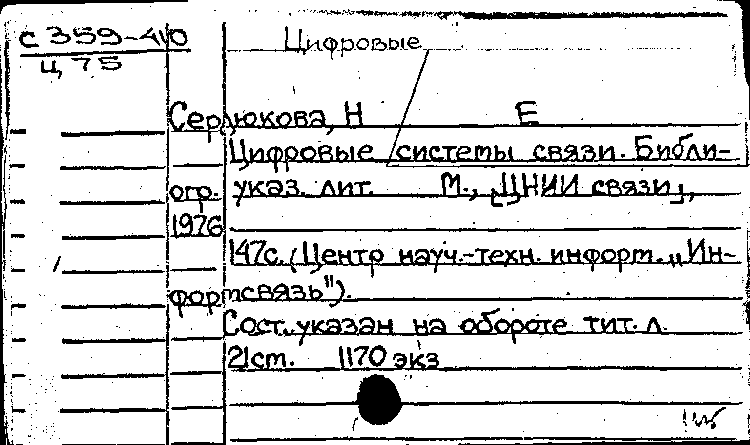 С 359-40 Цифровые
Ц 75
Сердюкова, Н Е
Цифровые системы связи. Библи-
огр. указ. лит. М., "ЦНИИ связи",
1976
147с. (Центр науч.-техн. информ. „Ин-
формсвязь").
Сост. указан на обороте тит. л.
21см. 1170 экз